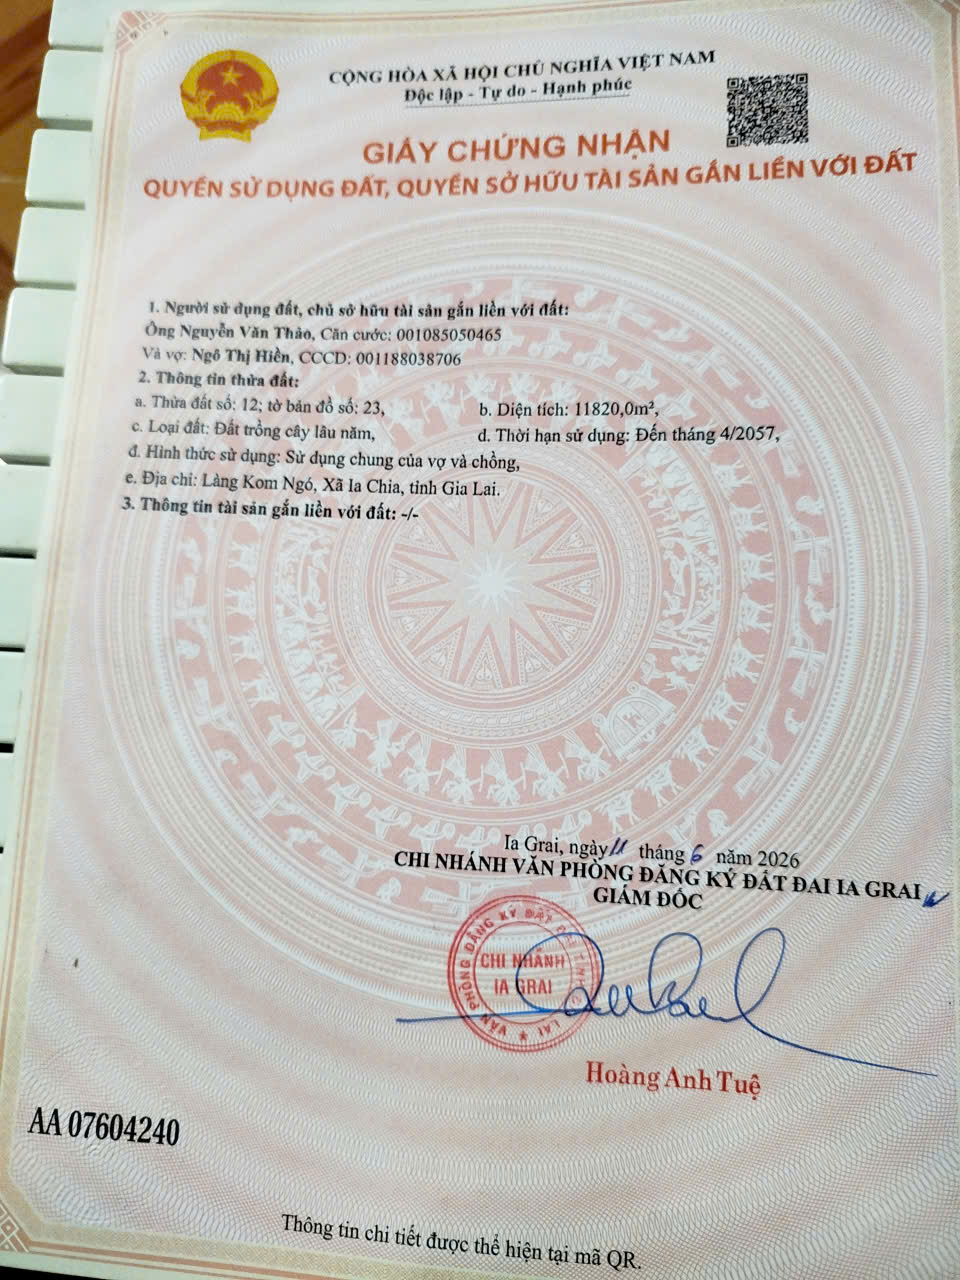 CỘNG HÒA XÃ HỘI CHỦ NGHĨA VIỆT NAM
Độc lập - Tự do - Hạnh phúc
GIẤY CHỨNG NHẬN
QUYỀN SỬ DỤNG ĐẤT, QUYỀN SỞ HỮU TÀI SẢN GẮN LIỀN VỚI ĐẤT
1. Người sử dụng đất, chủ sở hữu tài sản gắn liền với đất:
Ông Nguyễn Văn Thảo, Căn cước: 001085050465
Và vợ: Ngô Thị Hiền, CCCD: 001188038706
2. Thông tin thửa đất:
a. Thửa đất số: 12; tờ bản đồ số: 23, b. Diện tích: 11820,0m²,
c. Loại đất: Đất trồng cây lâu năm, d. Thời hạn sử dụng: Đến tháng 4/2057,
đ. Hình thức sử dụng: Sử dụng chung của vợ và chồng,
e. Địa chỉ: Làng Kom Ngó, Xã Ia Chia, tỉnh Gia Lai.
3. Thông tin tài sản gắn liền với đất: -/-
Ia Grai, ngày 11 tháng 6 năm 2026
CHI NHÁNH VĂN PHÒNG ĐĂNG KÝ ĐẤT ĐAI IA GRAI
GIÁM ĐỐC
VĂN PHÒNG ĐĂNG KÝ ĐẤT ĐAI TỈNH GIA LAI
CHI NHÁNH
IA GRAI
Hoàng Anh Tuệ
AA 07604240
Thông tin chi tiết được thể hiện tại mã QR.